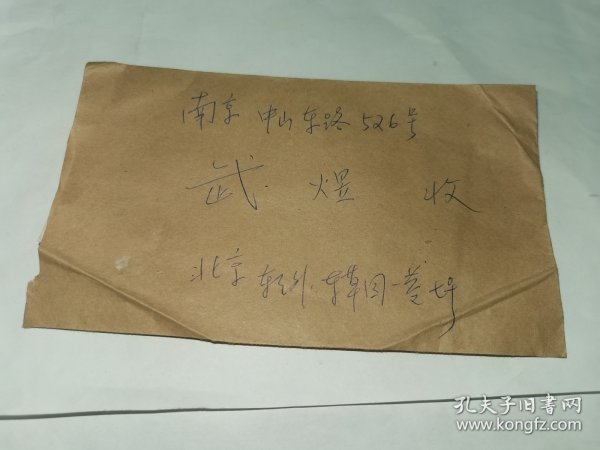 南京中山东路526号
武煜收
北京
孔夫子旧书网
www.kongfz.com